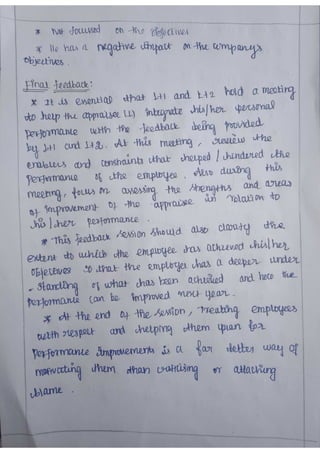 * Not focused on the objectives
* He has a negative impact on the company's
objectives.
Final feedback:
* It is essential that L+1 and L+2 hold a meeting
to help the appraisee (L) integrate his/her personal
performance with the feedback being provided
by L+1 and L+2. At this meeting, review the
enablers and constraints that helped / hindered the
performance of the employee. Also during this
meeting, focus on assessing the strengths and areas
of improvement of the appraisee in relation to
his / her performance.
* This feedback session should also clarify the
extent to which the employee has achieved his/her
objectives so that the employee has a deeper under
- standing of what has been achieved and how the
performance can be improved next year.
* At the end of the session, treating employees
with respect and helping them plan for
performance improvements is a far better way of
motivating them than criticising or attaching
blame.